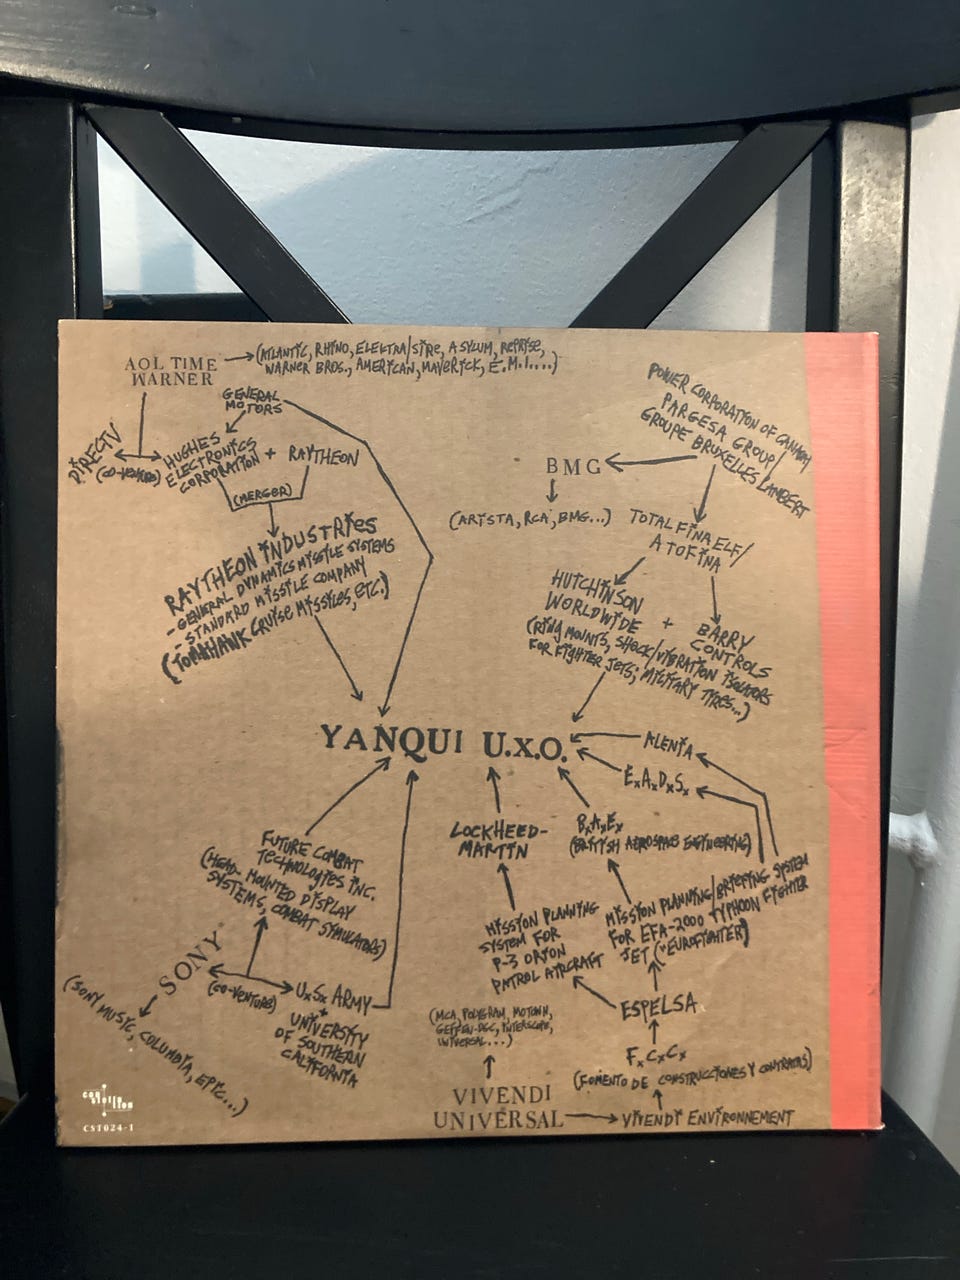 AOL TIME
WARNER
(ATLANTIC, RHINO, ELEKTRA/SIRE, ASYLUM, REPRISE,
WARNER BROS., AMERICAN, MAVERICK, E.M.I....)
GENERAL
MOTORS
DIRECTV
(CO-VENTURE)
HUGHES
ELECTRONICS
CORPORATION
+ RAYTHEON
(MERGER)
RAYTHEON INDUSTRIES
- GENERAL DYNAMICS MISSILE SYSTEMS
- STANDARD MISSILE COMPANY
(TOMAHAWK CRUISE MISSILES, ETC.)
POWER CORPORATION OF CANADA/
PARGESA GROUP/
GROUPE BRUXELLES LAMBERT
BMG
(ARISTA, RCA, BMG...)
TOTAL FINA ELF/
ATOFINA
HUTCHINSON
WORLDWIDE
+
BARRY
CONTROLS
(RING MOUNTS, SHOCK/VIBRATION ISOLATORS
FOR FIGHTER JETS; MILITARY TYRES...)
YANQUI U.X.O.
ALENIA
E.A.D.S.
B.A.E.
(BRITISH AEROSPACE ENGINEERING)
LOCKHEED-
MARTIN
MISSION PLANNING/BRIEFING SYSTEM
FOR EFA-2000 TYPHOON FIGHTER
JET ("EUROFIGHTER")
MISSION PLANNING
SYSTEM FOR
P-3 ORION
PATROL AIRCRAFT
ESPELSA
F.C.C.
(FOMENTO DE CONSTRUCCIONES Y CONTRATAS)
VIVENDI ENVIRONNEMENT
(MCA, POLYGRAM, MOTOWN,
GEFFEN-DGC, INTERSCOPE,
UNIVERSAL...)
VIVENDI
UNIVERSAL
FUTURE COMBAT
TECHNOLOGIES INC.
(HEAD-MOUNTED DISPLAY
SYSTEMS, COMBAT SIMULATORS)
SONY
(CO-VENTURE)
U.S. ARMY
+
UNIVERSITY
OF SOUTHERN
CALIFORNIA
(SONY MUSIC, COLUMBIA, EPIC...)
con
stella
tion
CST024-1